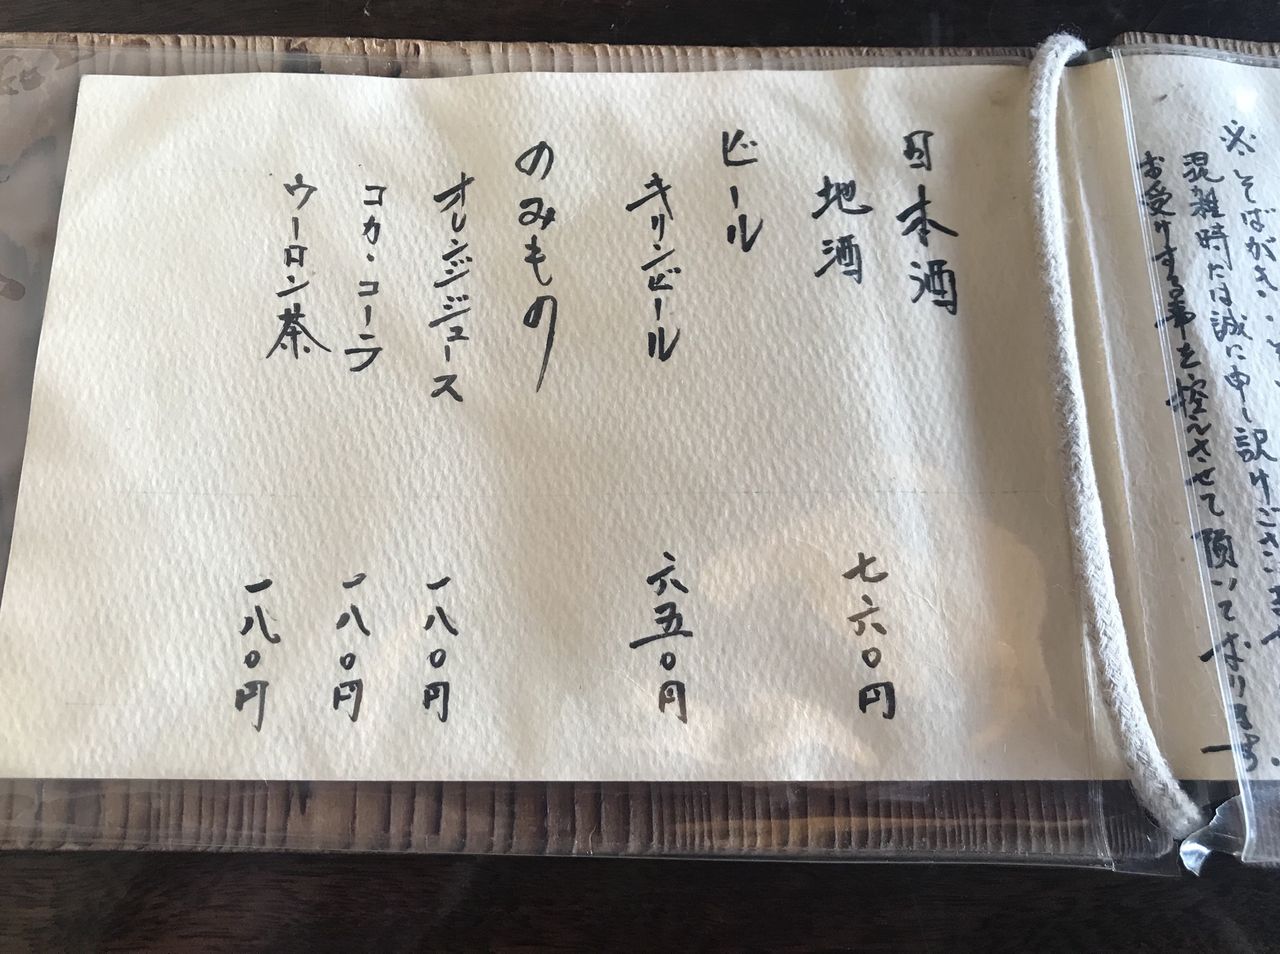 ※そばがき
混雑時には誠に申し訳けございません
お受けする事を控えさせて頂いております。
日本酒
地酒 七六〇円
ビール
キリンビール 六五〇円
のみもの
オレンジジュース 一八〇円
コカ・コーラ 一八〇円
ウーロン茶 一八〇円